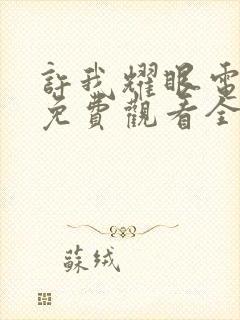 許我耀眼電
免費觀看全
蘇絨